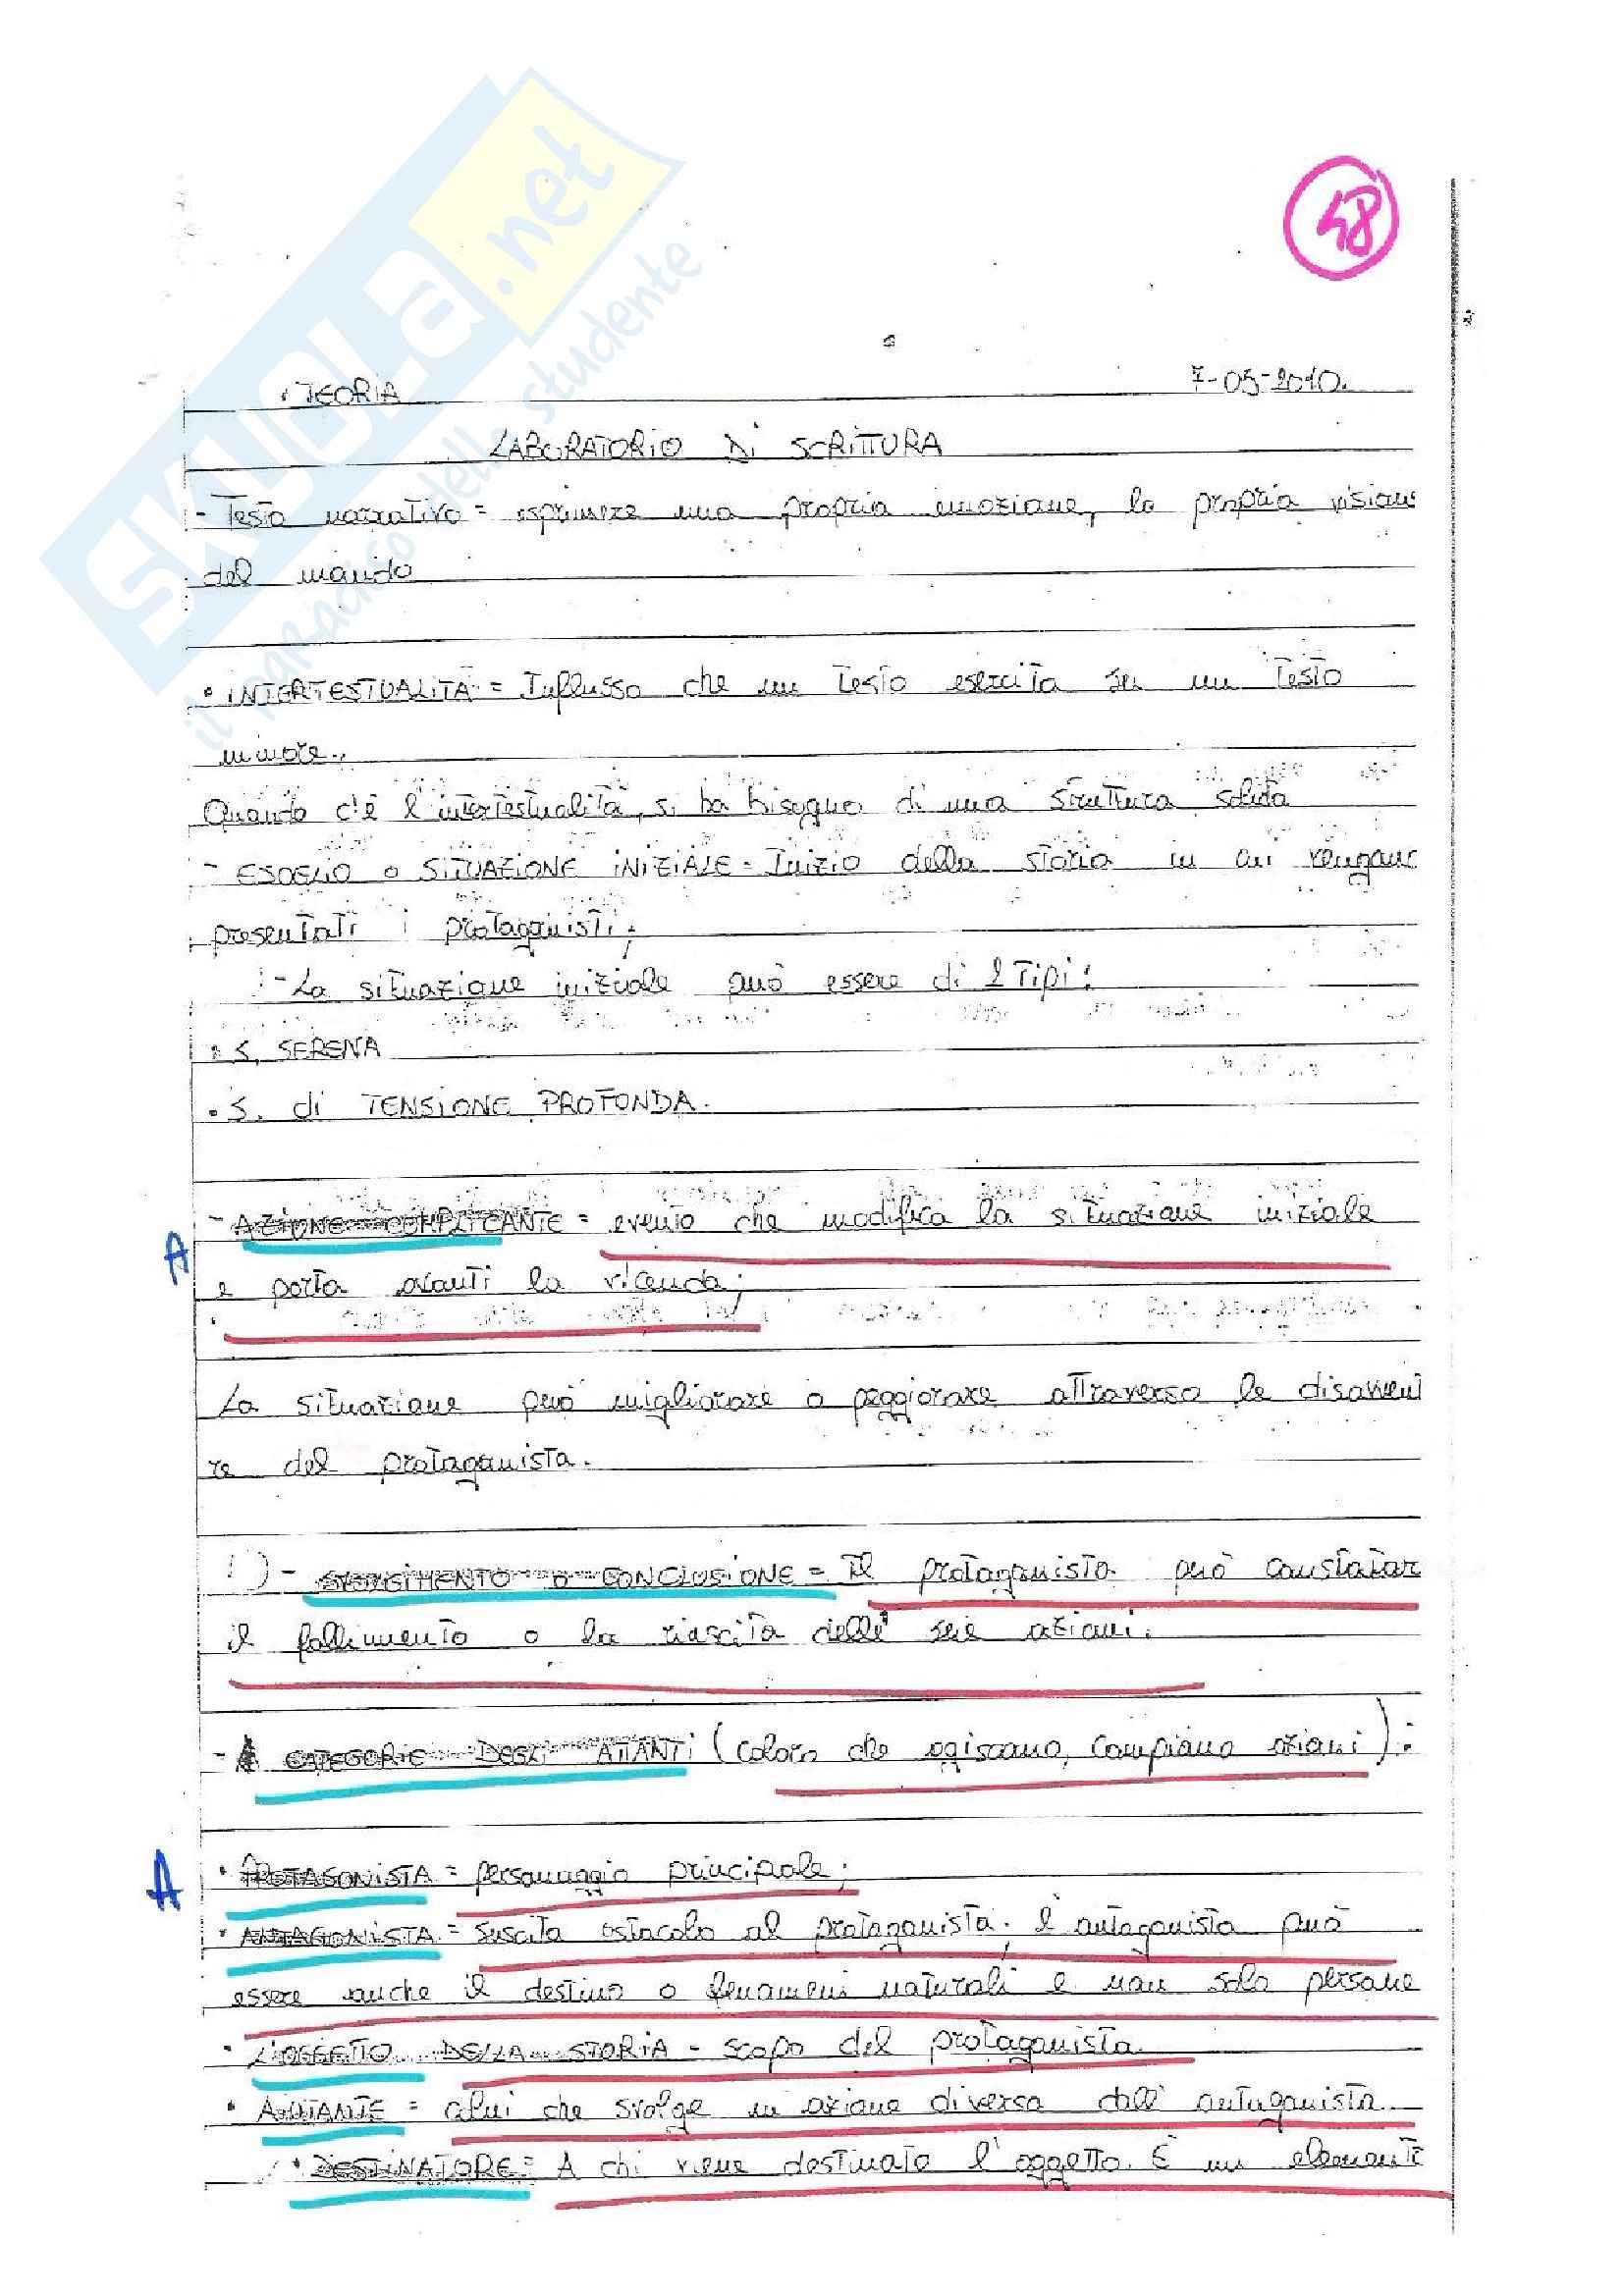 48
SKUOLA.net
il paradiso dello studente
• TEORIA 7-05-2010.
LABORATORIO Di SCRITTURA
- Testo narrativo = esprimere una propria emozione, la propria vision
del mondo
• INTERTESTUALITÀ = Influsso che un testo esercita su un testo
minore.
Quando c'è l'intertestualità, si ha bisogno di una struttura solida
- ESORDIO o SITUAZIONE INIZIALE = Inizio della storia in cui vengano
presentati i protagonisti;
- La situazione iniziale può essere di 2 Tipi:
• S. SERENA
• S. di TENSIONE PROFONDA.
- AZIONE COMPLICANTE = evento che modifica la situazione iniziale
A
e porta avanti la vicenda;
La situazione può migliorare o peggiorare attraverso le disavventu
re del protagonista.
1) - SCIOGLIMENTO o CONCLUSIONE = Il protagonista può constatar
il fallimento o la riuscita delle sue azioni.
- CATEGORIE DEGLI ATTANTI (coloro che agiscono, compiono azioni):
A
• PROTAGONISTA = personaggio principale;
• ANTAGONISTA = suscita ostacolo al protagonista; l'antagonista può
essere anche il destino o fenomeni naturali e non solo persone
• L'OGGETTO DELLA STORIA - scopo del protagonista.
• AIUTANTE = colui che svolge un azione diversa dall'antagonista.
• DESTINATORE = A chi viene destinato l'oggetto. È un elemento